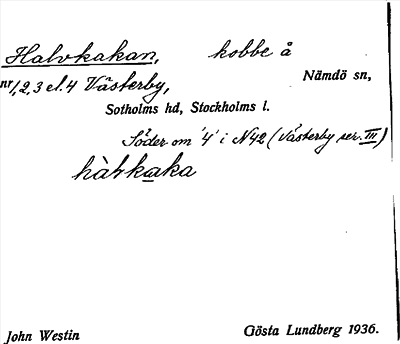 Halvkakan, kobbe å
nr 1, 2, 3 el. 4 Västerby, Nämdö sn,
Sotholms hd, Stockholms l.
Söder om '4' i N42 (Västerby ser. III)
hàlvkaka
John Westin Gösta Lundberg 1936.